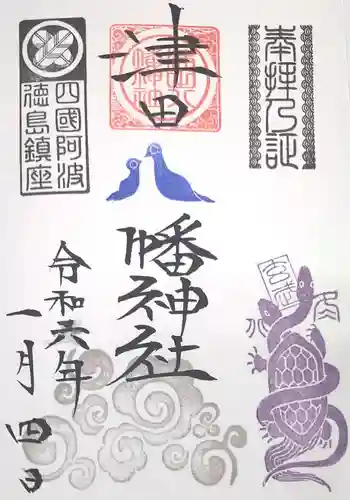 奉拝之証
津田
八幡神社
四國阿波
徳島鎮座
令和六年
一月四日
玄武